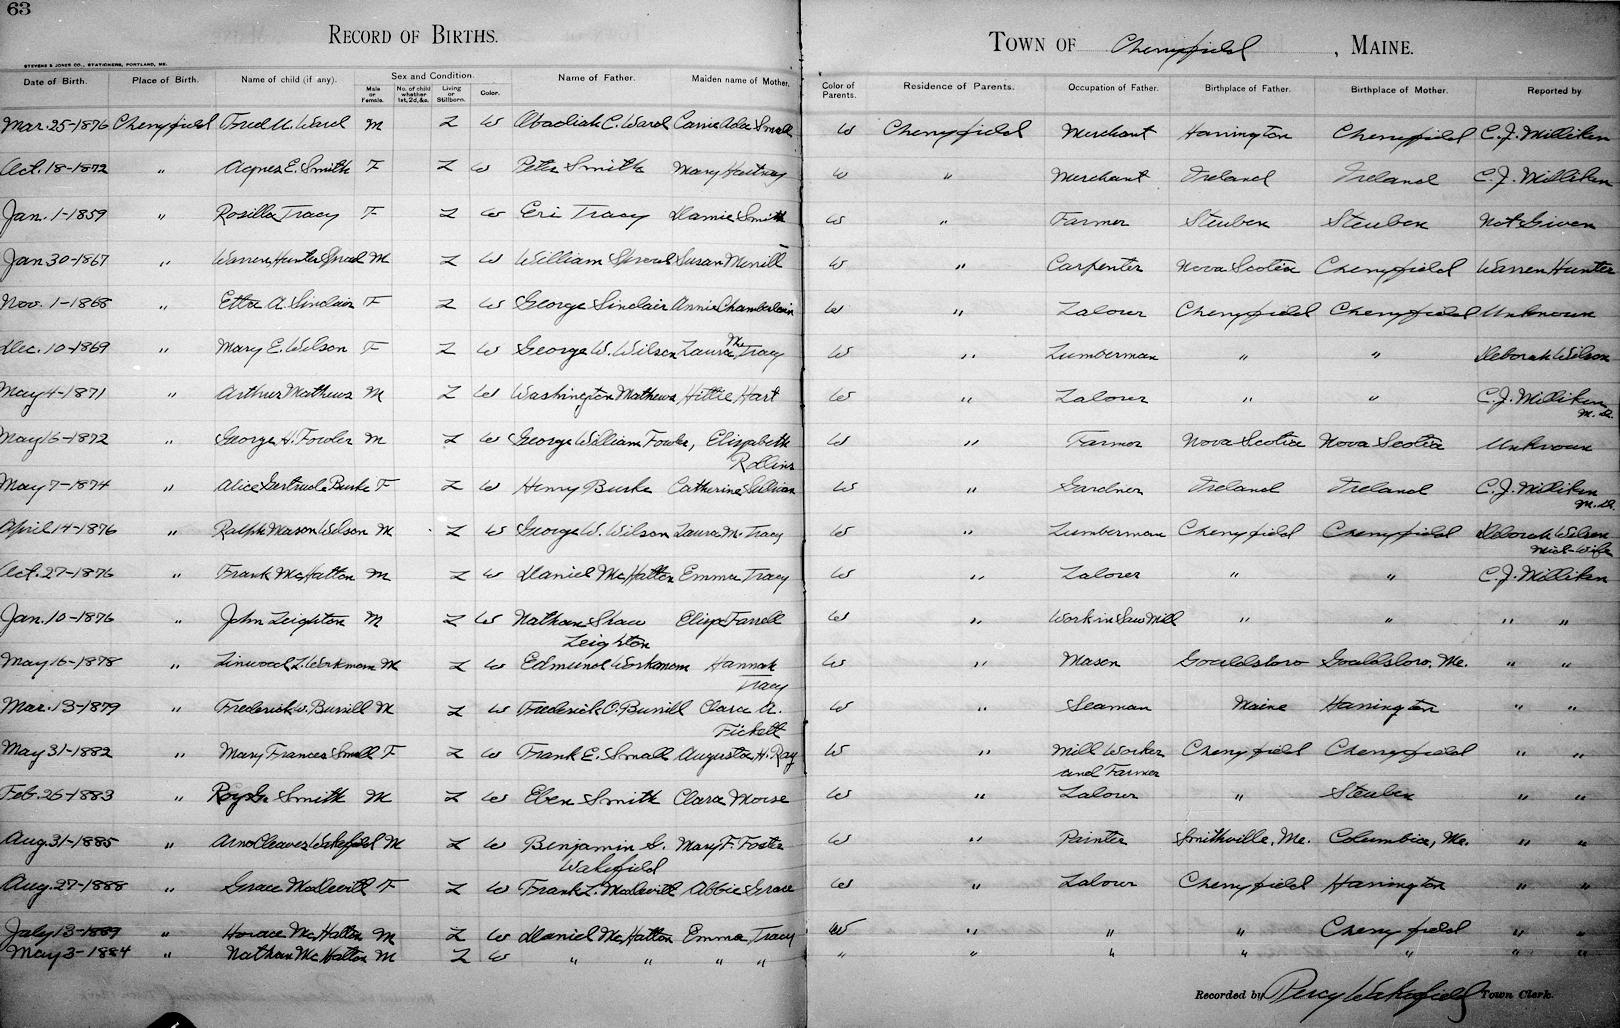 63
RECORD OF BIRTHS.
TOWN OF Cherryfield, MAINE.
STEVENS & JONES CO., STATIONERS, PORTLAND, ME.
Date of Birth. Place of Birth. Name of child (if any). Sex and Condition. Male or Female. No. of child whether 1st, 2d, &c. Living or Stillborn. Color. Name of Father. Maiden name of Mother. Color of Parents. Residence of Parents. Occupation of Father. Birthplace of Father. Birthplace of Mother. Reported by
Mar. 25-1876 Cherryfield Fred U. Ward M L W Abadiah C. Ward Carrie Ada Small W Cherryfield Merchant Harrington Cherryfield C. J. Milliken
Oct. 18-1872 " Agnes E. Smith F L W Peter Smith Mary W " Merchant Ireland Ireland C. J. Milliken
Jan. 1-1859 " Rosilla Tracy F L W Eri Tracy Damie Smith W " Farmer Steuben Steuben Not Given
Jan. 30-1867 " Warren Hunter M L W William Susan Merrill W " Carpenter Nova Scotia Cherryfield Warren Hunter
Nov. 1-1868 " Etta A. Sinclair F L W George Sinclair Annie Chamberlain W " Laborer Cherryfield Cherryfield Unknown
Dec. 10-1869 " Mary E. Wilson F L W George W. Wilson Laura M. Tracy W " Lumberman " " Deborah Wilson
May 4-1871 " Arthur Mathews M L W Washington Mathews Hittie Hart W " Laborer " " C. J. Milliken M.D.
May 16-1872 " George H. Fowler M L W George William Fowler, Elizabeth Rollins W " Farmer Nova Scotia Nova Scotia Unknown
May 7-1874 " Alice Gertrude Burke F L W Henry Burke Catherine Sullivan W " Gardner Ireland Ireland C. J. Milliken M.D.
April 14-1876 " Ralph Mason Wilson M L W George W. Wilson Laura M. Tracy W " Lumberman Cherryfield Cherryfield Deborah Wilson Mid-Wife
Oct. 27-1876 " Frank McHatton M L W Daniel McHatton Emma Tracy W " Laborer " " C. J. Milliken
Jan. 10-1876 " John Leighton M L W Nathan Shaw Leighton Eliza Farrell W " Work in Saw Mill " " " "
May 16-1878 " Linwood L. Workman M L W Edmund Workman Hannah Tracy W " Mason Gouldsboro Gouldsboro, Me. " "
Mar. 13-1879 " Frederick W. Burrill M L W Frederick O. Burrill Clara A. Fickett W " Seaman Maine Harrington " "
May 31-1882 " Mary Frances Small F L W Frank E. Small Augusta H. Ray W " Mill Worker and Farmer Cherryfield Cherryfield " "
Feb. 26-1883 " Roy G. Smith M L W Eben Smith Clara Morse W " Laborer " Steuben " "
Aug. 31-1885 " Arno Cleaves Wakefield M L W Benjamin S. Wakefield Mary F. Foster W " Painter Smithville, Me. Columbia, Me. " "
Aug. 27-1888 " Grace Madevill F L W Frank L. Madevill Abbie Grace W " Laborer Cherryfield Harrington " "
July 13-1889 " Horace McHatton M L W Daniel McHatton Emma Tracy W " " " Cherryfield " "
May 3-1884 " Nathan McHatton M L W " " " " " " " " " " "
Recorded by Percy Wakefield Town Clerk.